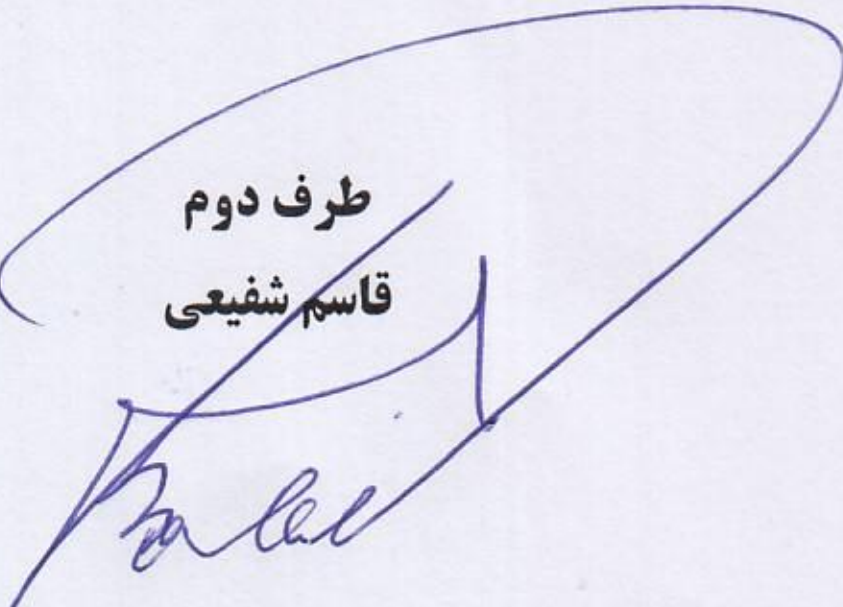 طرف دوم
قاسم شفیعی